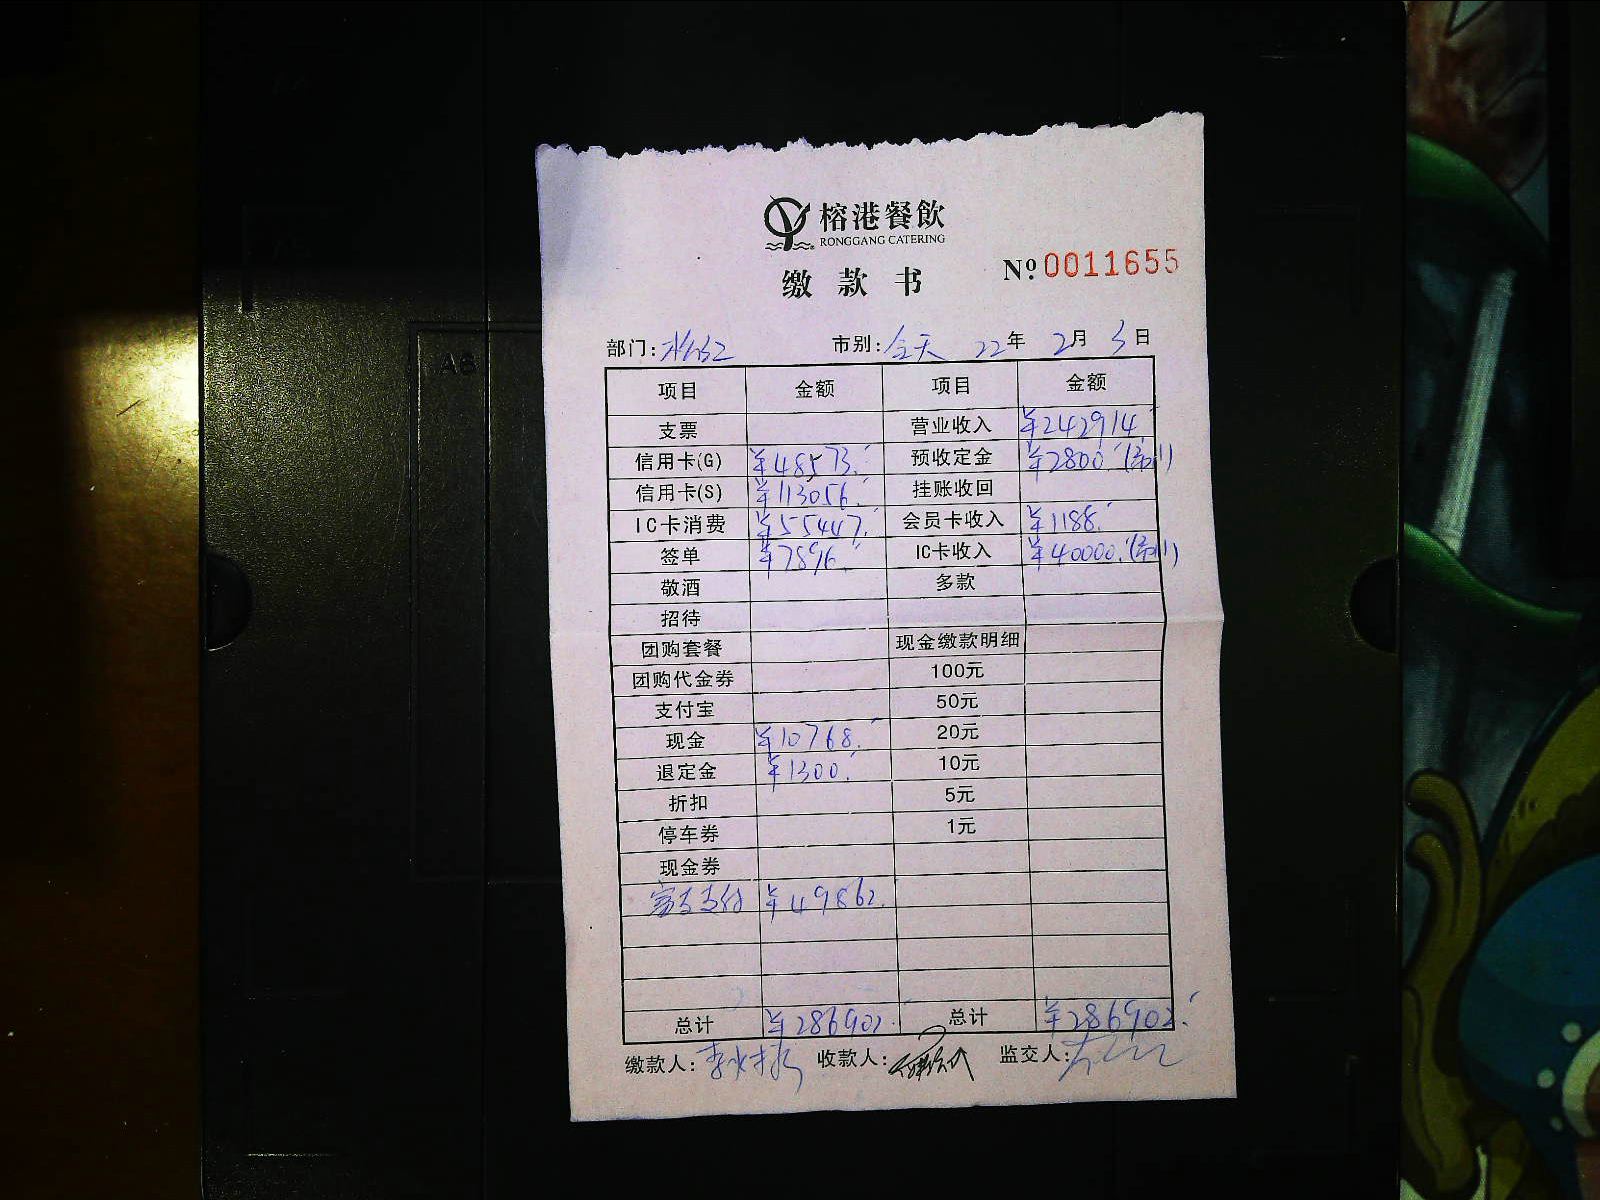 榕港餐飲
RONGGANG CATERING
缴款书 Nº 0011655
部门: 市别:全天 22年 2月 3日
项目 金额 项目 金额
支票 营业收入 ¥242914.
信用卡(G) ¥48573. 预收定金 ¥2800.
信用卡(S) ¥113056. 挂账收回
IC卡消费 ¥55447. 会员卡收入 ¥1188.
签单 ¥7896. IC卡收入 ¥40000.
敬酒 多款
招待
团购套餐 现金缴款明细
团购代金券 100元
支付宝 50元
现金 ¥10768. 20元
退定金 ¥1300. 10元
折扣 5元
停车券 1元
现金券
支付 ¥49862.
总计 ¥286902. 总计 ¥286902.
缴款人: 收款人: 监交人:
A6